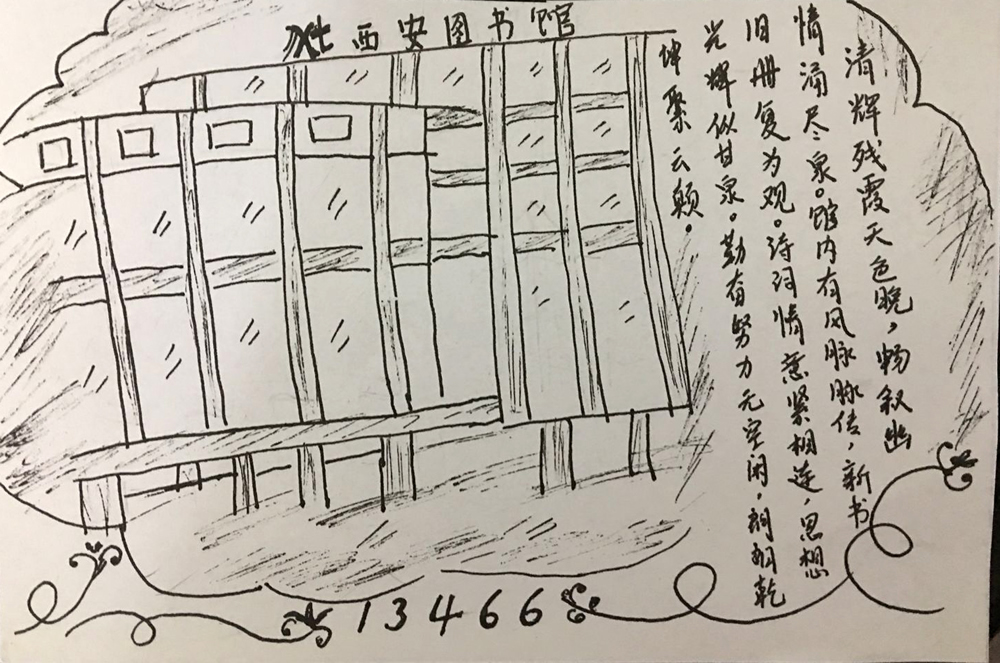 西安图书馆
清辉残霞天色晚，畅叙幽
情涌尽泉。馆内有风脉脉传，新书
旧册复为观。诗词情意紧相连，思想
光辉似甘泉。勤奋努力无空闲，朗朗乾
坤聚云颠。
13466